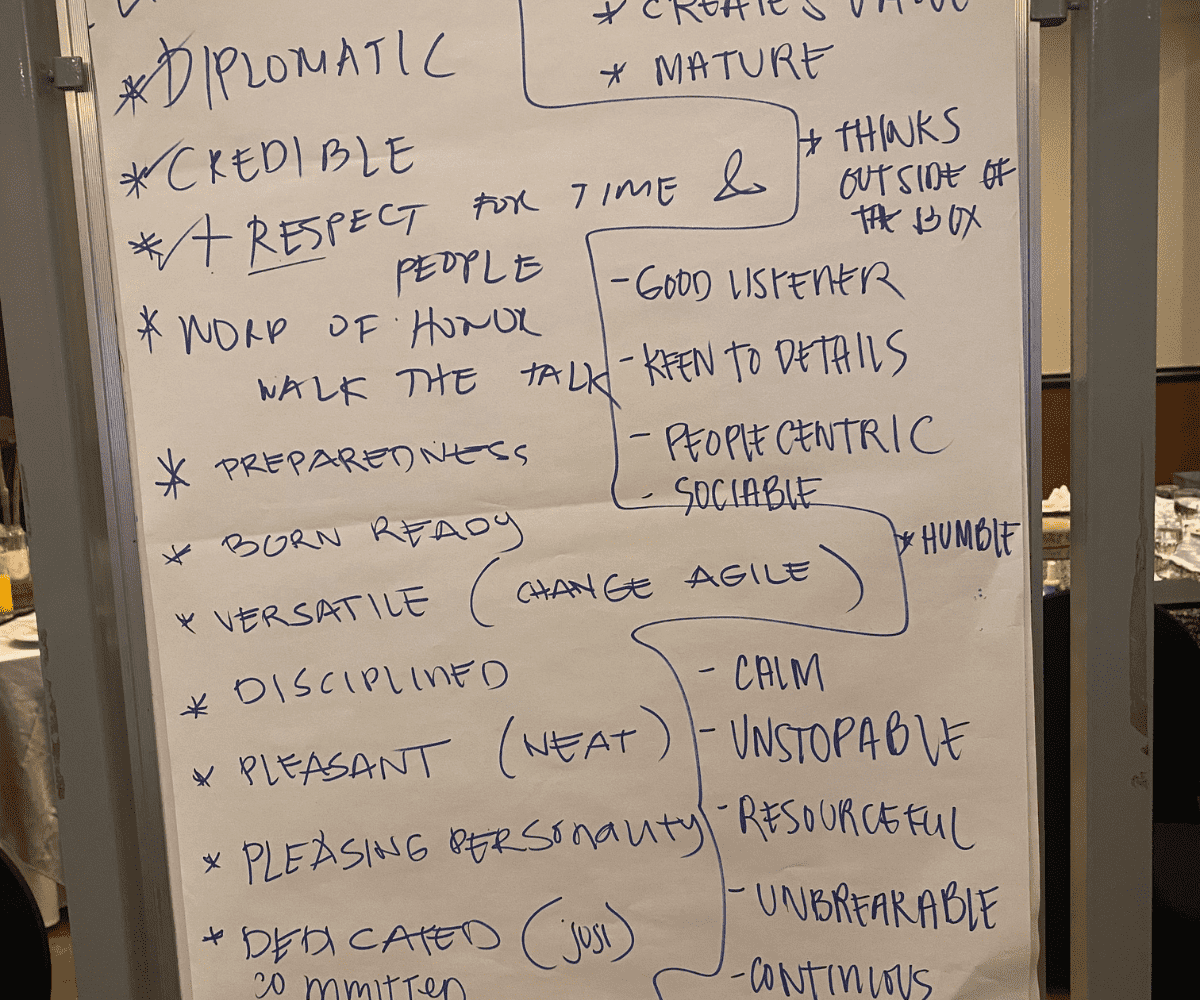 * DIPLOMATIC
* CREDIBLE
* + RESPECT FOR TIME &
PEOPLE
* WORD OF HONOR
WALK THE TALK
* PREPAREDNESS
* BORN READY
* VERSATILE (CHANGE AGILE)
* DISCIPLINED
* PLEASANT (NEAT)
* PLEASING PERSONALITY
* DEDICATED (
* CREATES VALUE
* MATURE
* THINKS
OUTSIDE OF
THE BOX
- GOOD LISTENER
- KEEN TO DETAILS
- PEOPLE CENTRIC
- SOCIABLE
* HUMBLE
- CALM
- UNSTOPABLE
- RESOURCEFUL
- UNBREAKABLE
- CONTINUOUS